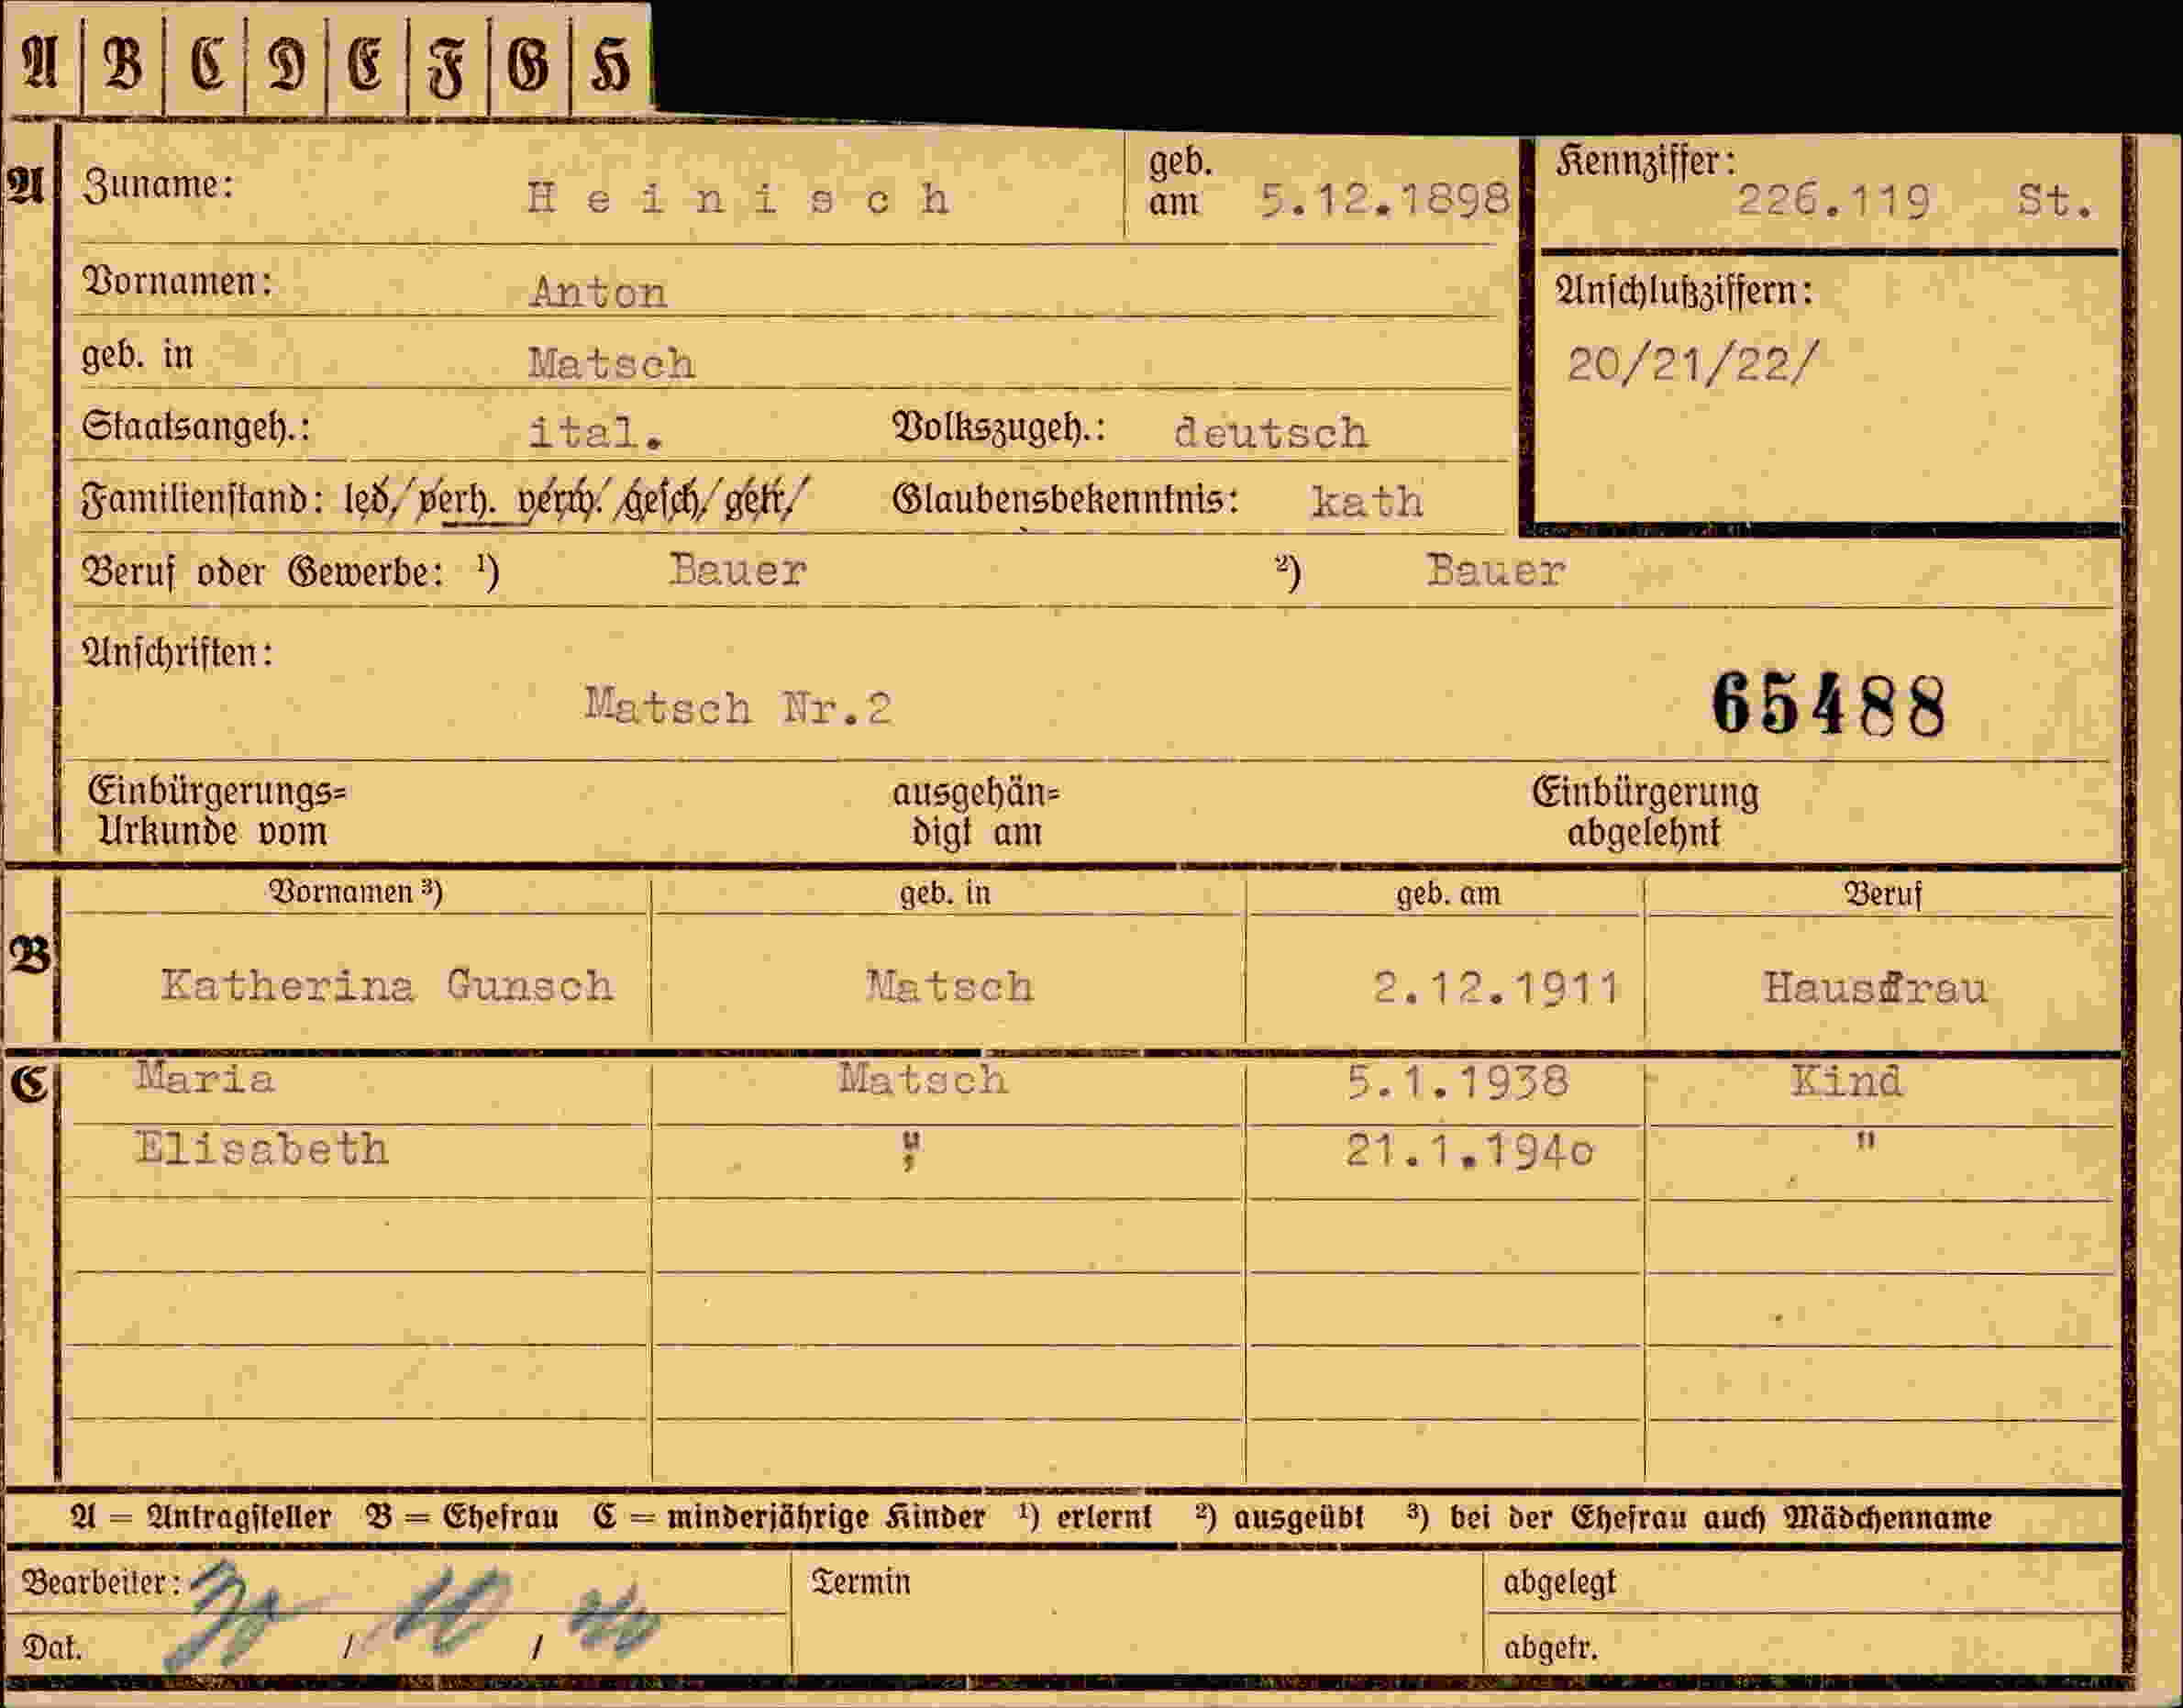 A B C D E F G H
A Zuname: Heinisch geb. am 5.12.1898 Kennziffer: 226.119 St.
Vornamen: Anton Anschlußziffern:
geb. in Matsch 20/21/22/
Staatsangeh.: ital. Volkszugeh.: deutsch
Familienstand: led/ verh. verw. /gesch/ getr/ Glaubensbekenntnis: kath
Beruf oder Gewerbe: ¹) Bauer ²) Bauer
Anschriften:
Matsch Nr.2 65488
Einbürgerungs= ausgehän= Einbürgerung
Urkunde vom digt am abgelehnt
Vornamen ³) geb. in geb. am Beruf
B Katherina Gunsch Matsch 2.12.1911 Hausfrau
C Maria Matsch 5.1.1938 Kind
Elisabeth " 21.1.194o "
A = Antragsteller B = Ehefrau C = minderjährige Kinder ¹) erlernt ²) ausgeübt ³) bei der Ehefrau auch Mädchenname
Bearbeiter: Termin abgelegt
Dat. / 10 / 40 abgetr.